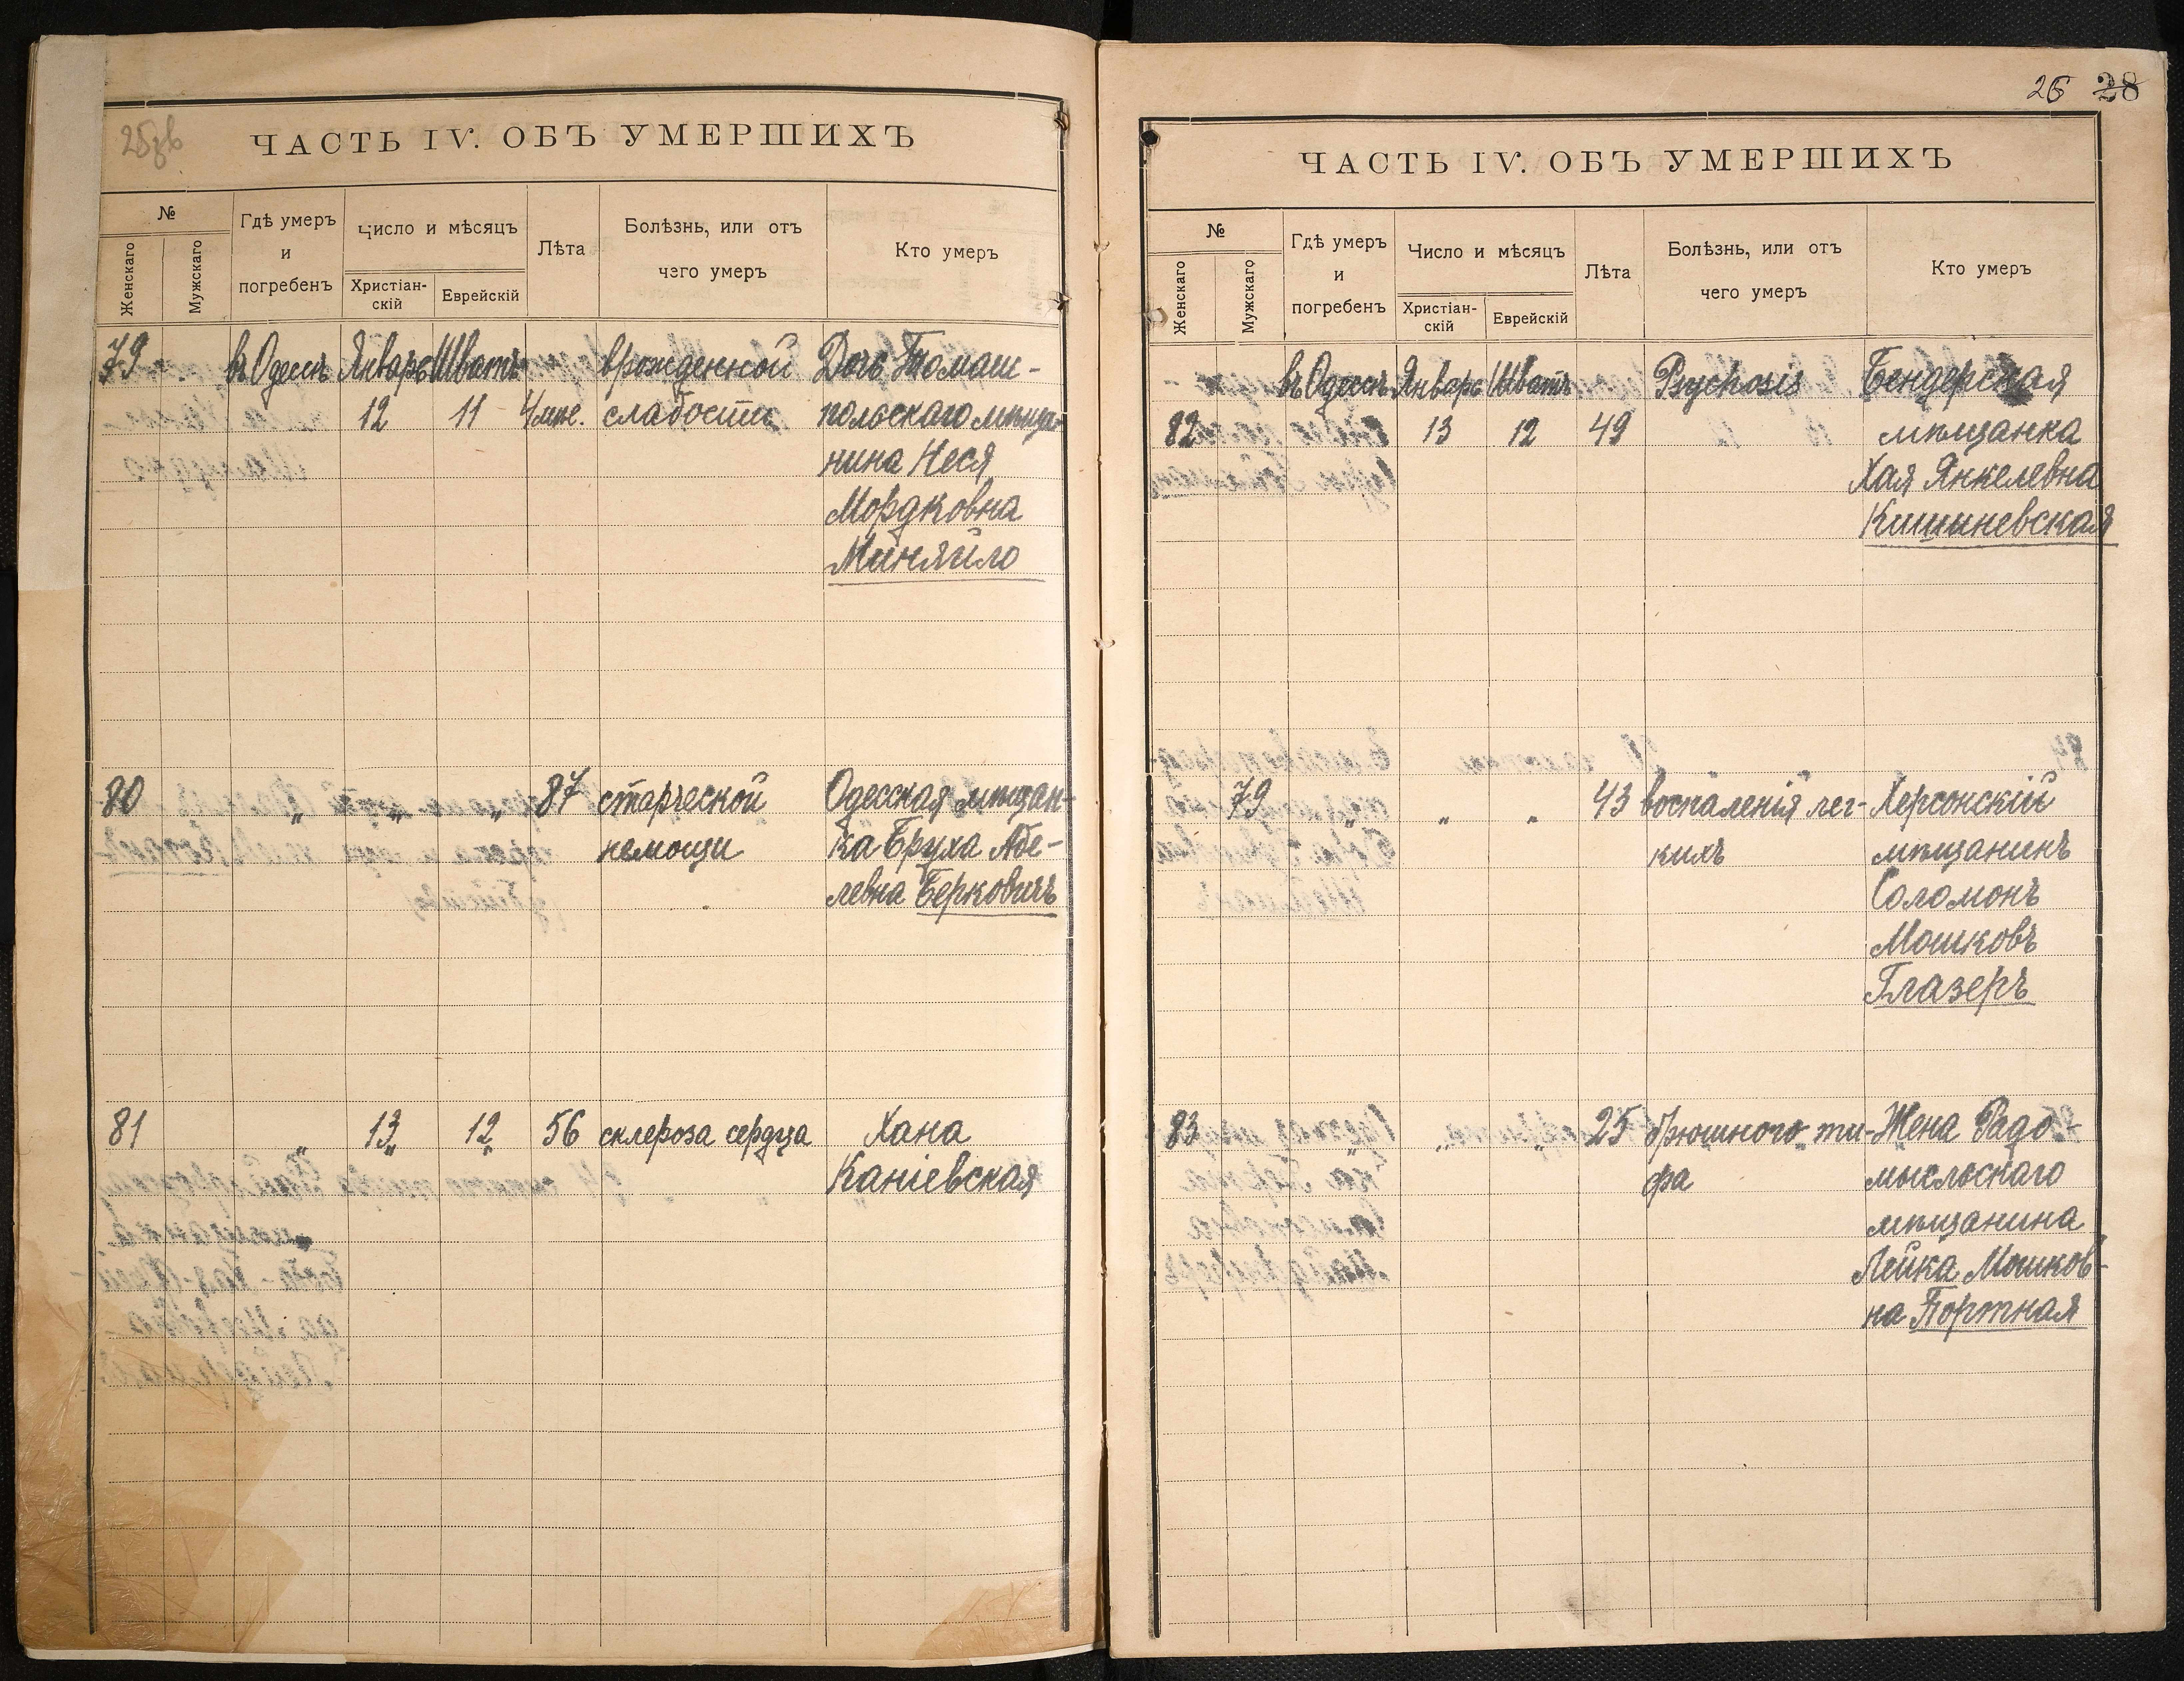 25зв
ЧАСТЬ IV. ОБЪ УМЕРШИХЪ
№
Женскаго
Мужскаго
Гдѣ умеръ
и
погребенъ
Число и мѣсяцъ
Христіан-
скій
Еврейскій
Лѣта
Болѣзнь, или отъ
чего умеръ
Кто умеръ
79 въ Одессѣ Январь Шватъ врожденной Дочь Томаш-
12 11 4 мѣс. слабости польскаго мѣща-
нина Неся
Мордковна
Миняйло
80 " " " 87 старческой Одесская мѣщан-
немощи ка Бруха Абе-
левна Берковичъ
81 " 13 " 12 " 56 склероза сердца Хана
Каніевская
26 28
ЧАСТЬ IV. ОБЪ УМЕРШИХЪ
№
Женскаго
Мужскаго
Гдѣ умеръ
и
погребенъ
Число и мѣсяцъ
Христіан-
скій
Еврейскій
Лѣта
Болѣзнь, или отъ
чего умеръ
Кто умеръ
въ Одессѣ Январь Шватъ Psychosis Бендерская
82 13 12 49 мѣщанка
Хая Янкелевна
Кишиневская
79 " " " 43 воспаленія лег- Херсонскій
кихъ мѣщанинъ
Соломонъ
Мошковъ
Глазеръ
83 " " " 25 брюшного ти- Жена Радо-
фа мысльскаго
мѣщанина
Лейка Мошков-
на Портная